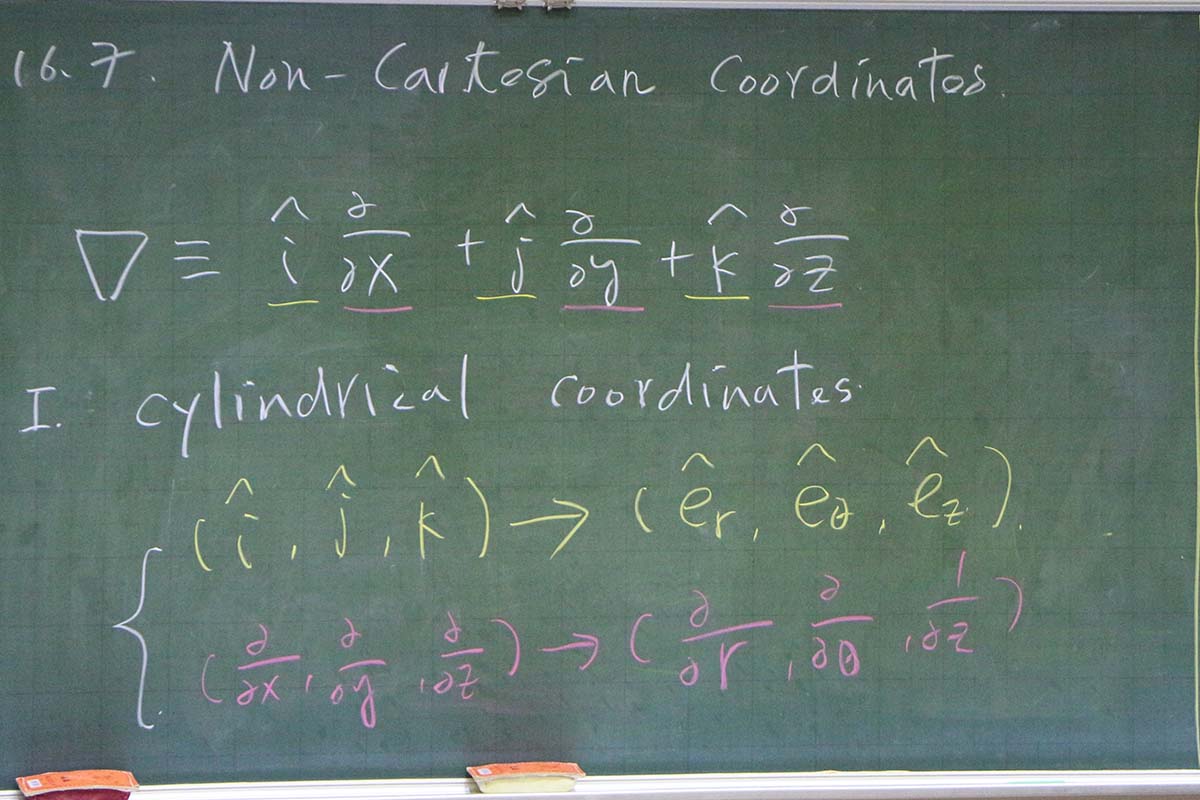 16.7. Non-Cartesian Coordinates.
∇ ≡ î ∂/∂x + ĵ ∂/∂y + k̂ ∂/∂z
I. cylindrical coordinates.
(î, ĵ, k̂) → (ê_r, ê_θ, ê_z).
(∂/∂x, ∂/∂y, ∂/∂z) → (∂/∂r, ∂/∂θ, 1/∂z)